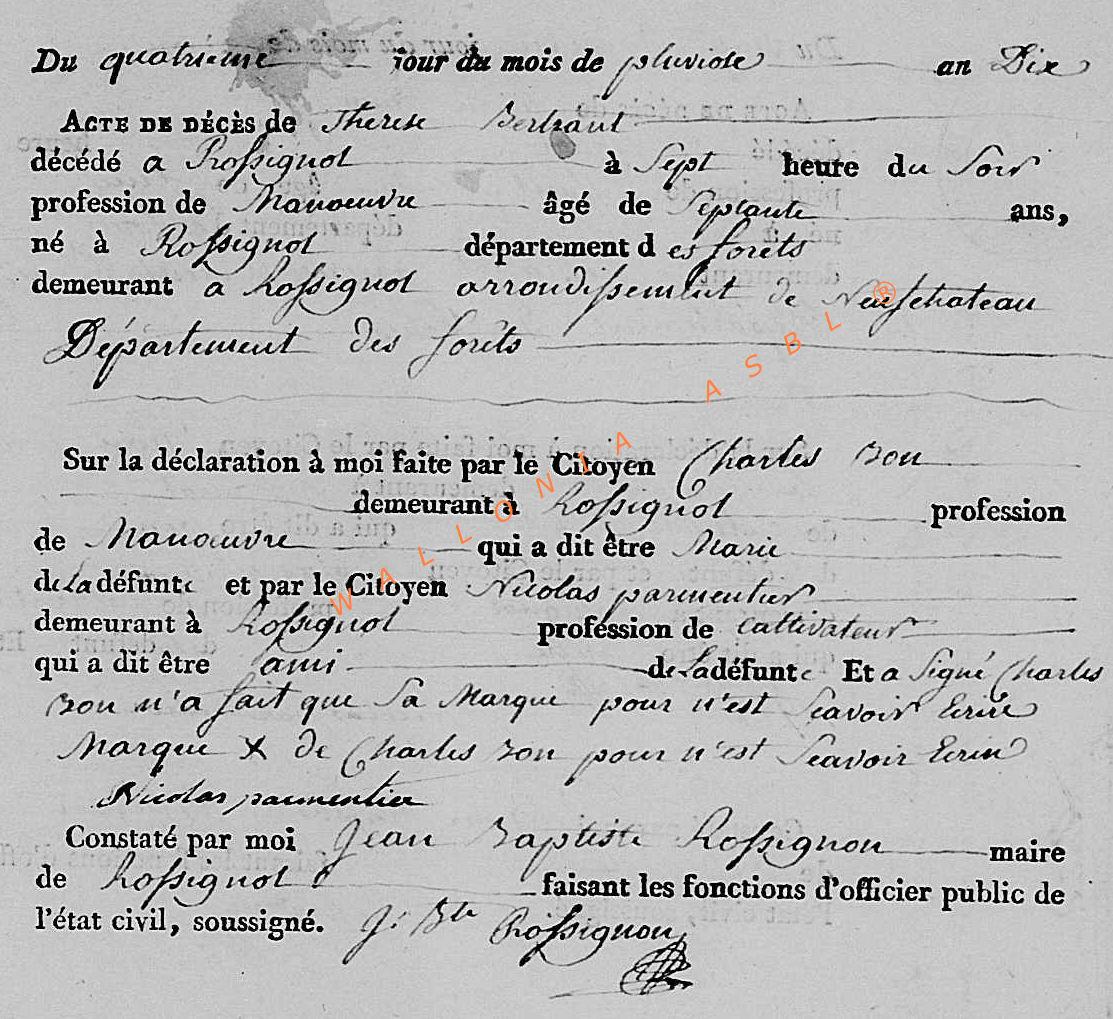 Du quatrieme jour du mois de pluviose an Dix
ACTE DE DÉCÈS de Therese Bertrant
décédé a Rossignol à Sept heure du Soir
profession de Manoeuvre âgé de Septante ans,
né à Rossignol département des forêts
demeurant a Rossignol arrondissement de Neufchateau
Département des forêts
Sur la déclaration à moi faite par le Citoyen Charles Bon
demeurant à Rossignol profession
de Manoeuvre qui a dit être Marie
de La défunte et par le Citoyen Nicolas parmentier
demeurant à Rossignol profession de Cultivateur
qui a dit être ami de La défunte Et a Signé Charles
Bon n'a fait que Sa Marque pour n'est Scavoir Ecrire
Marque X de Charles Bon pour n'est Scavoir Ecrire
Nicolas parmentier
Constaté par moi Jean Baptiste Rossignon maire
de Rossignol faisant les fonctions d'officier public de
l'état civil, soussigné. J. Bte Rossignon
WALLONIA ASBL ®